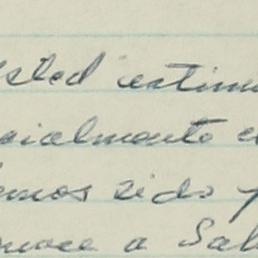 usted estim
cialmente e
emos sido
onoce a Sal